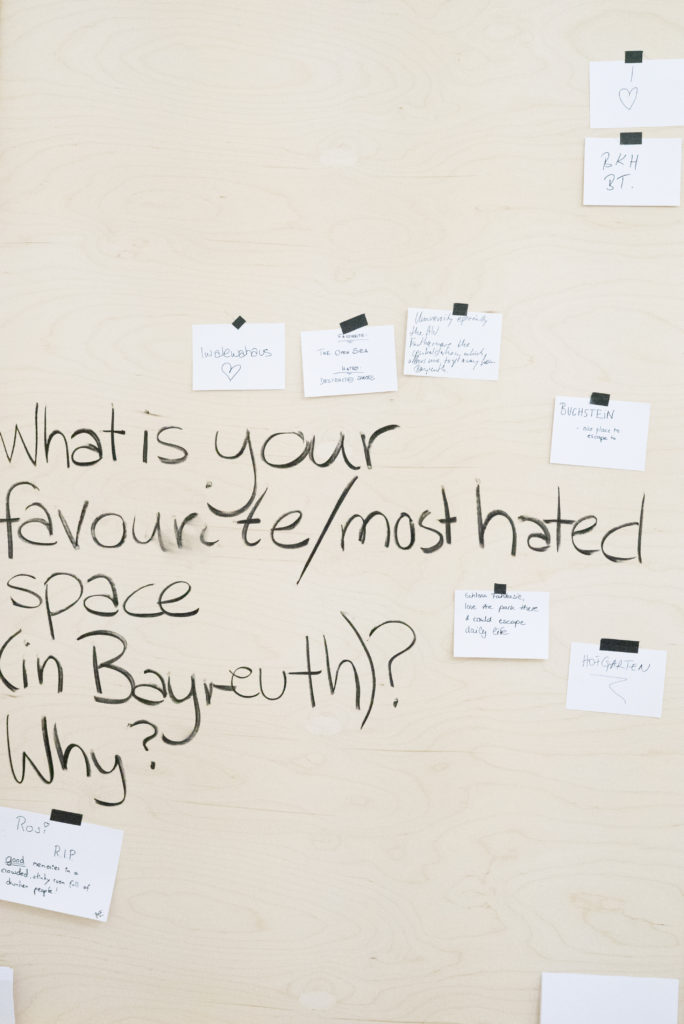 I
♡
BKH
BT.
Iwalewahaus
♡
FAVOURITE
THE OPEN SEA
HATED:
DESTROYED
University especially
the
Furthermore the
centralstation, which
allows me to get away from
Bayreuth
BUCHSTEIN
- nice place to
escape to
What is your
favourite/most hated
space
(in Bayreuth)?
Why?
Schloss Fantaisie,
love the park there
& could escape
daily life
HOFGARTEN
Rosi
R.I.P
good memories in a
crowded, stinky room full of
drunken people!